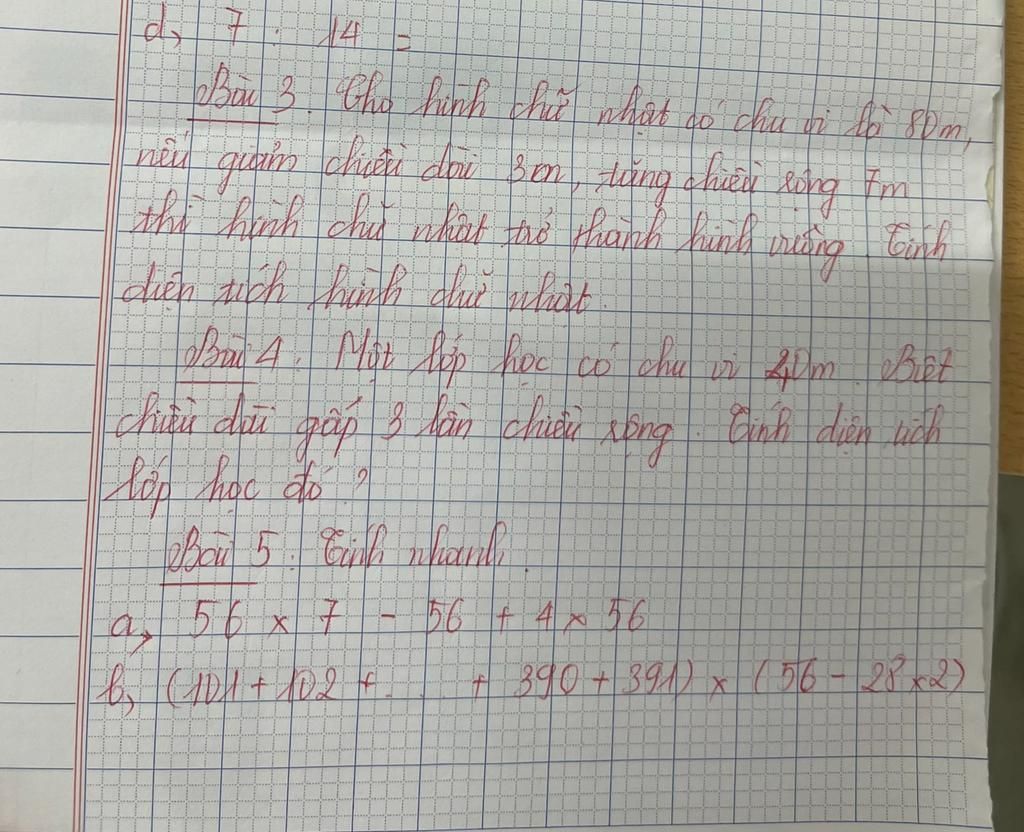 d, 7 : 14 =
Bài 3. Cho hình chữ nhật có chu vi là 80m,
nếu giảm chiều dài 3m, tăng chiều rộng 7m
thì hình chữ nhật trở thành hình vuông. Tính
diện tích hình chữ nhật.
Bài 4. Một lớp học có chu vi 40m. Biết
chiều dài gấp 3 lần chiều rộng. Tính diện tích
lớp học đó?
Bài 5. Tính nhanh.
a, 56 × 7 - 56 + 4 × 56
b, (101 + 102 + .... + 390 + 391) × (56 - 28 × 2)